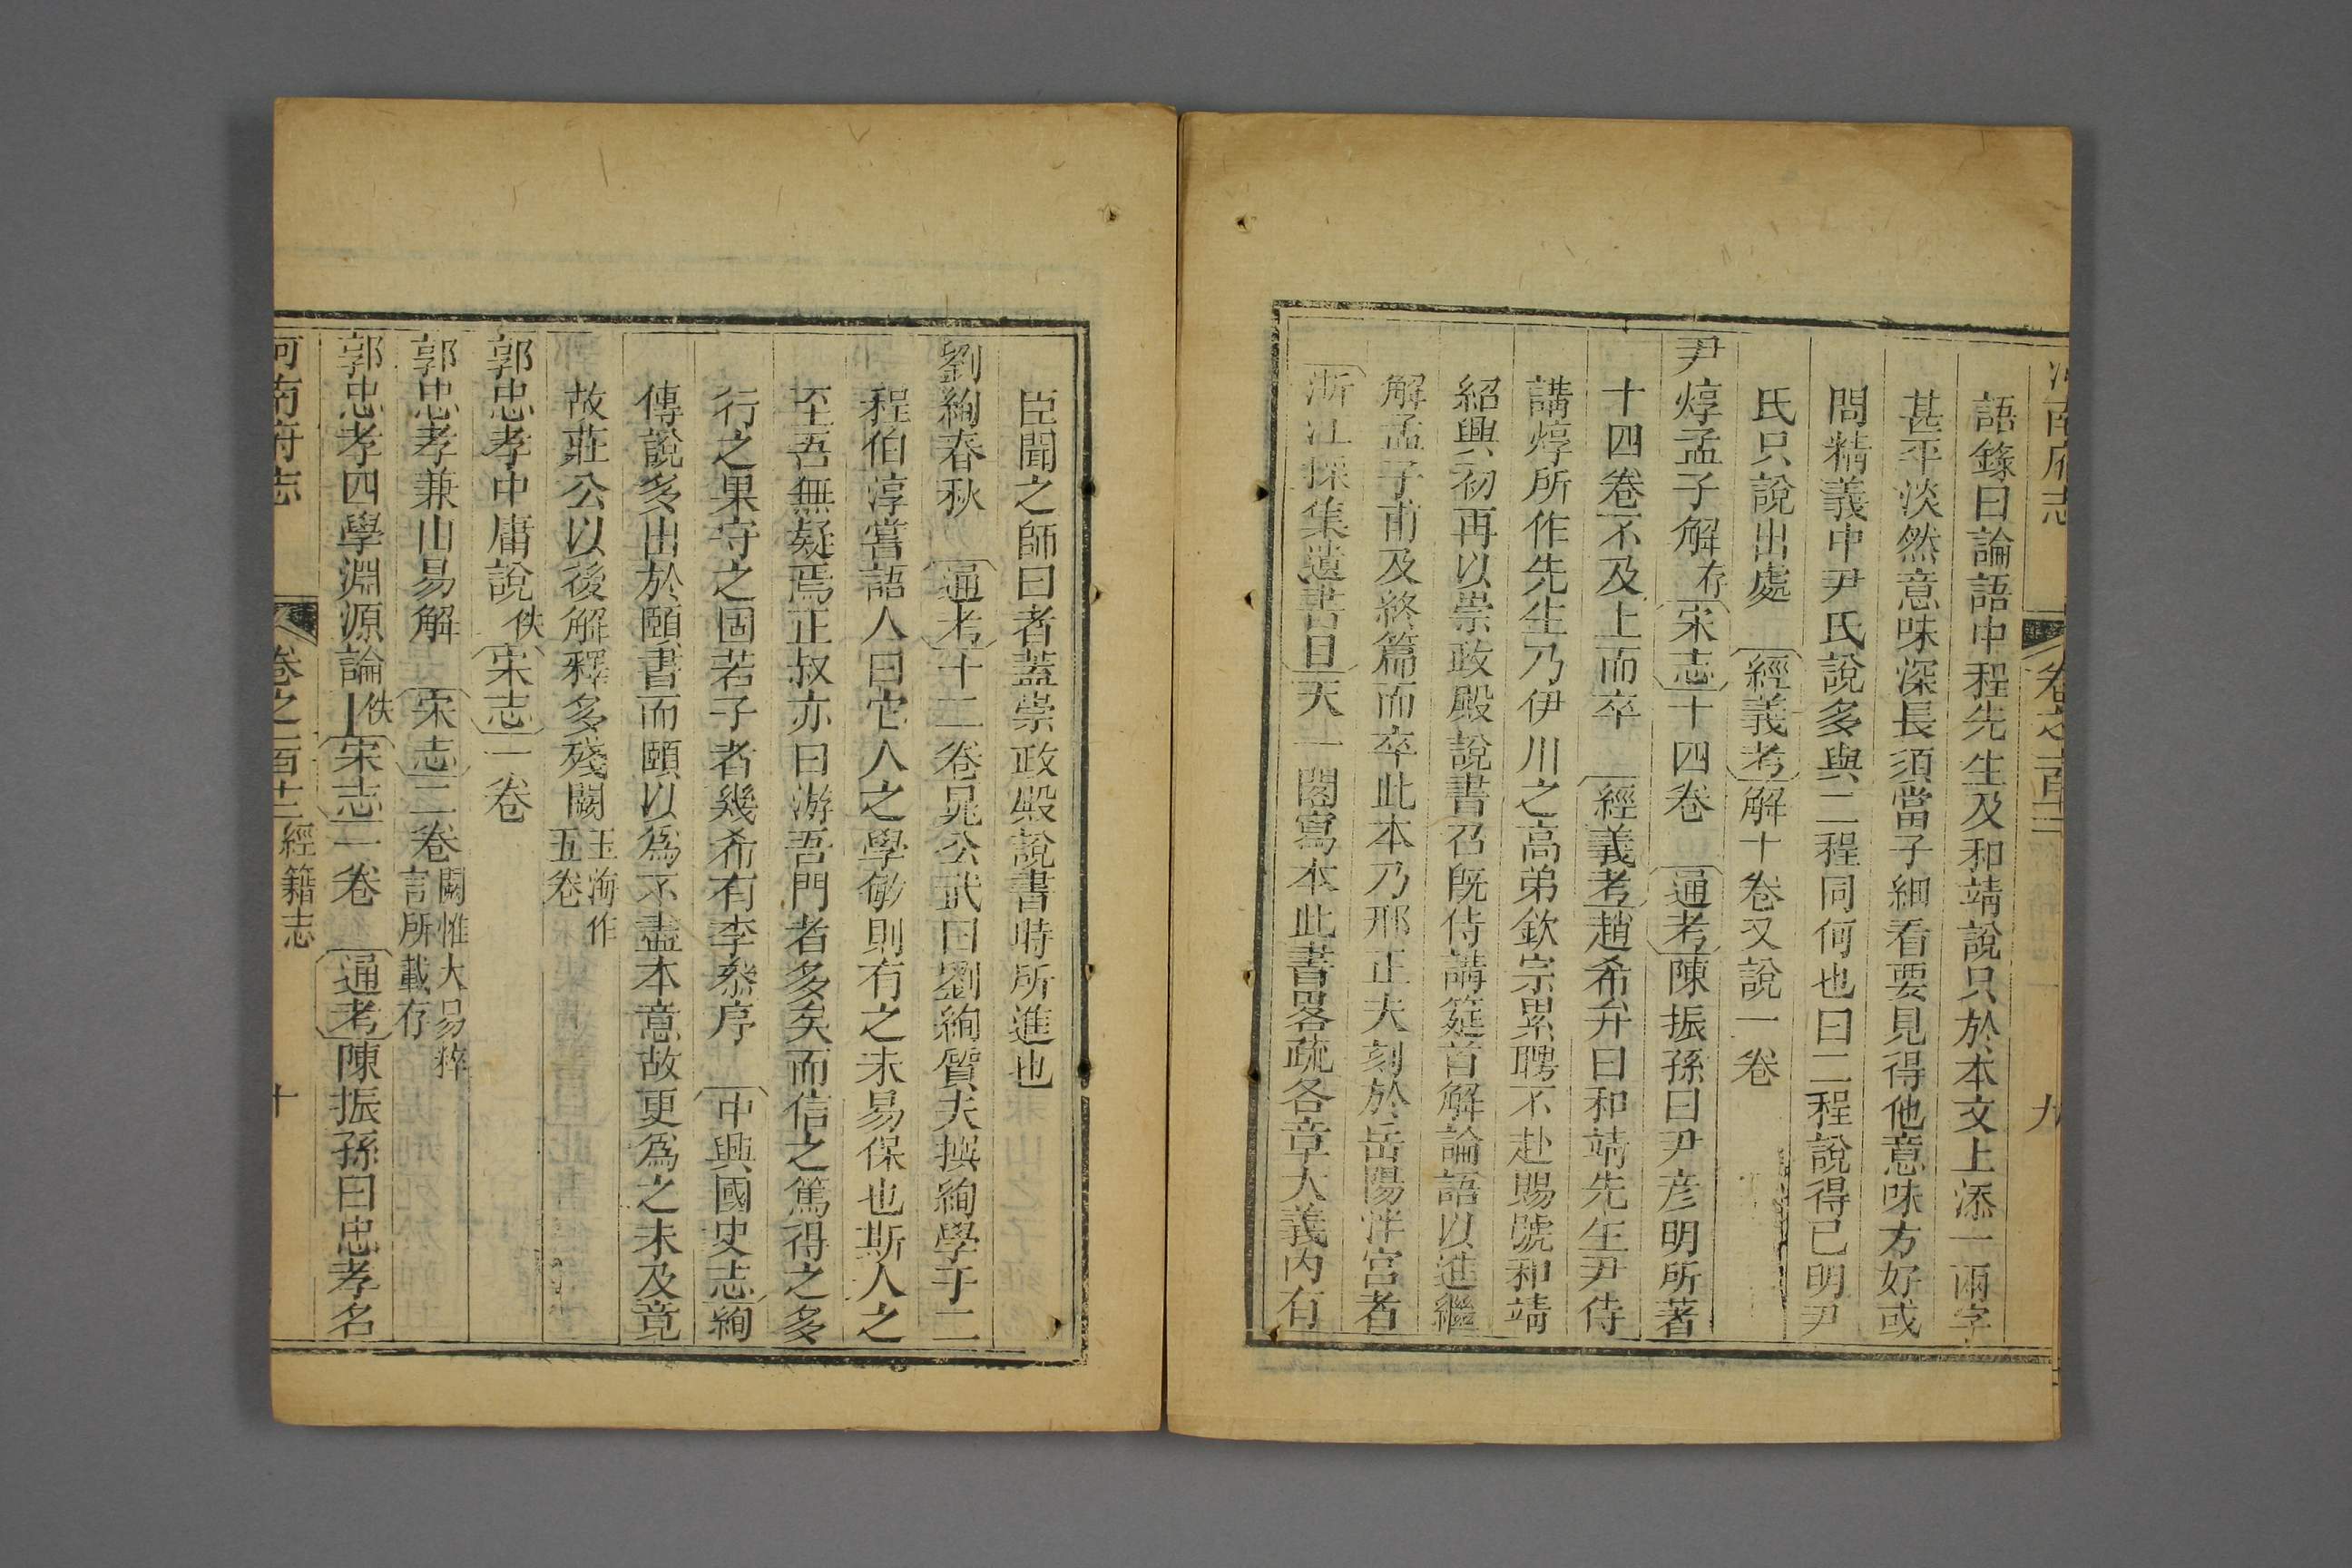 河南府志 卷之一百十二 九
語錄曰論語中程先生及和靖說只於本文上添一兩字
甚平淡然意味深長須當子細看要見得他意味方好或
問精義中尹氏說多與二程同何也曰二程說得已明尹
氏只說出處 經義考解十卷又說一卷
尹焞孟子解存宋志十四卷 通考陳振孫曰尹彥明所著
十四卷不及上而卒 經義考趙希弁曰和靖先生尹侍
講焞所作先生乃伊川之高弟欽宗累聘不赴賜號和靖
紹興初再以崇政殿說書召既侍講筵首解論語以進繼
解孟子甫及終篇而卒此本乃邢正夫刻於岳陽泮宮者
浙江採集遺書曰天一閣寫本此書畧疏各章大義內有
臣聞之師曰者蓋崇政殿說書時所進也
劉絢春秋 通考十二卷晁公武曰劉絢質夫撰絢學于二
程伯淳嘗語人曰它人之學敏則有之未易保也斯人之
至吾無疑焉正叔亦曰游吾門者多矣而信之篤得之多
行之果守之固若子者幾希有李參序 中興國史志絢
傳說多出於頤書而頤以為不盡本意故更為之未及竟
故莊公以後解釋多殘闕玉海作五卷
郭忠孝中庸說佚宋志一卷
郭忠孝兼山易解 宋志二卷闕惟大易粹言所載存
郭忠孝四學淵源論佚宋志一卷 通考陳振孫曰忠孝名
河南府志 卷之一百十二 經籍志 十